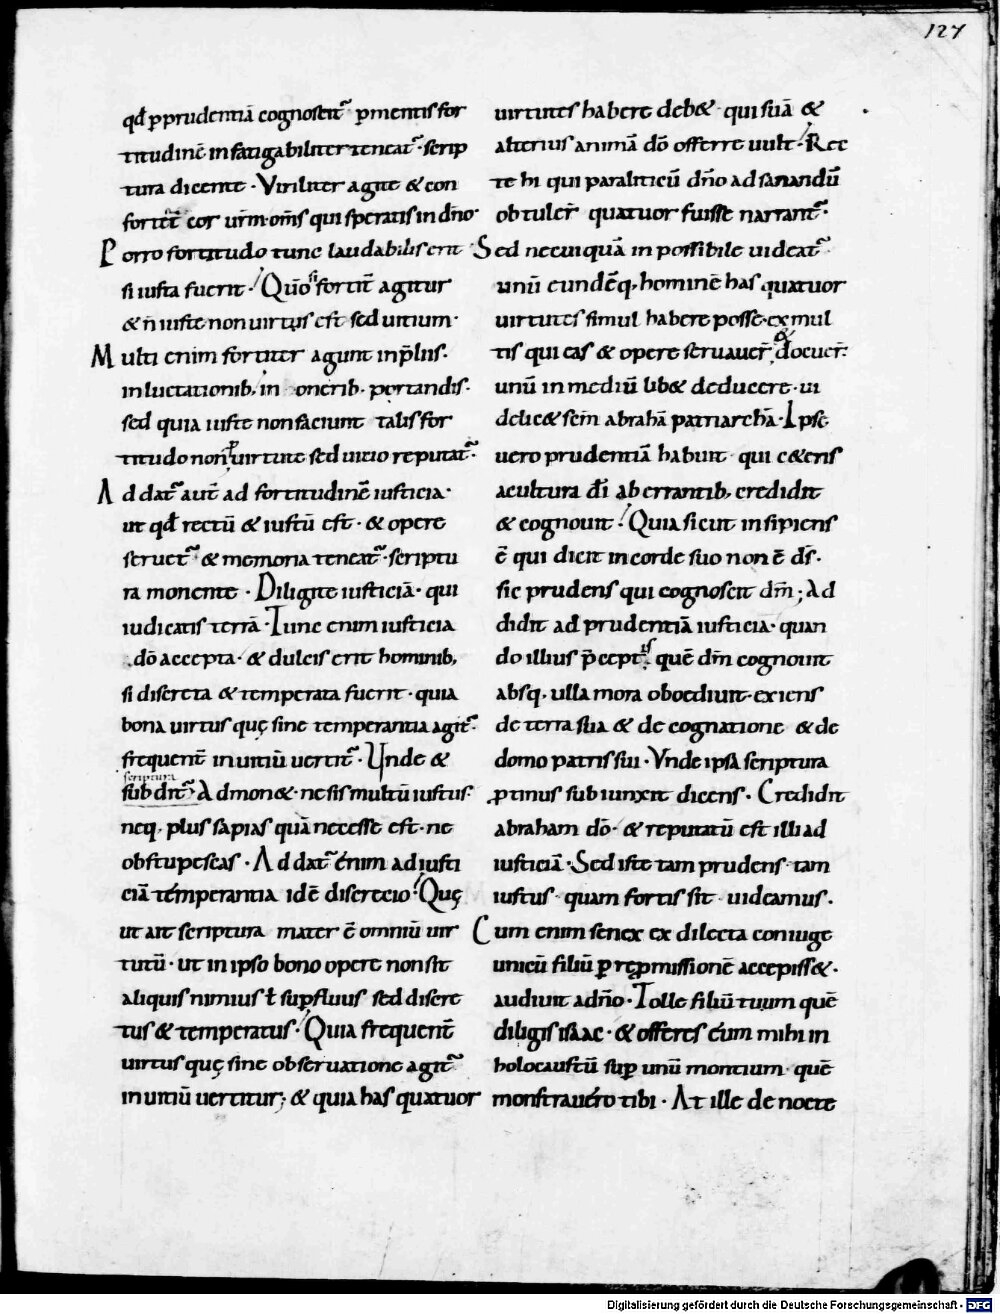 127
qđ ꝓ prudentiā cognoscit᷑ ꝑ mentis for
titudinē infatigabiliter teneat᷑ scrip
tura dicente · Viriliter agite & con
fortet᷑ cor ur̄m · om̄s qui speratis in dn̄o ·
Porro fortitudo tunc laudabilis erit
si iusta fuerit · Qūo si fortit̄ agitur
& n̄ iuste non uirtus est sed uitium ·
Multi enim fortiter agunt in p̄liis ·
in luctationib; in onerib; portandis ·
sed quia iuste non faciunt talis for
titudo non ꝓ uirtute sed uitio reputat᷑ ·
Addat᷑ aut̄ ad fortitudinē iusticia ·
ut qđ rectū & iustū est · & opere
seruet᷑ & memoria teneat᷑ · scriptu
ra monente · Diligite iusticiā · qui
iudicatis terrā · Tunc enim iusticia
dō accepta · & dulcis erit hominib;
si discreta & temperata fuerit · quia
bona uirtus quę sine temperantia agit᷑ ·
frequent̄ in uitiū uertit᷑ · Unde &
scriptura
subdit᷑ · Admon& · ne sis multū iustus ·
neq; plus sapias quā necesse est · ne
obstupescas · Addat᷑ enim ad iusti
ciā temperantia idē discretio · Quę
ut ait scriptura mater ē omniū uir
tutū · ut in ipso bono opere non sit
aliquis nimius ł suꝑfluus sed discre
tus & temperatus · Quia frequent̄
uirtus quę sine obseruatione agit᷑
in uitiū uertitur; & quia has quatuor
uirtutes habere deb& · qui suā &
alterius animā dō offerre uult · Rec
te hi qui paraliticū dn̄o ad sanandū
obtuler̄ quatuor fuisse narrant᷑ ·
Sed ne cuiquā inpossibile uideat᷑
unū eundēq; hominē has quatuor
uirtutes simul habere posse · ex mul
tis qui eas & opere seruauer̄ & docuer̄ ·
unū in mediū lib& deducere · ui
delic& sem̄ abrahā patriarchā · Ipse
uero prudentiā habuit · qui c&eris
a cultura dī aberrantib; credidit
& cognouit · Quia sicut insipiens
ē qui dicit in corde suo non ē ds̄ ·
sic prudens qui cognoscit dm̄; Ad
didit ad prudentiā iusticia · quan
do illius p̄ceptis quē dm̄ cognouit
absq; ulla mora oboediuit · exiens
de terra sua & de cognatione & de
domo patris sui · Vnde ipsa scriptura
ꝓtinus subiunxit dicens · Credidit
abraham dō · & reputatū est illi ad
iusticiā · Sed iste tam prudens tam
iustus quam fortis sit uideamus ·
Cum enim senex ex dilecta coniuge
unicū filiū ꝑ reꝓmissionē accepiss& ·
audiuit a dn̄o · Tolle filiū tuum quē
diligis isaac · & offeres eum mihi in
holocaustū suꝑ unū montium quē
monstrauero tibi · At ille de nocte
Digitalisierung gefördert durch die Deutsche Forschungsgemeinschaft - DFG